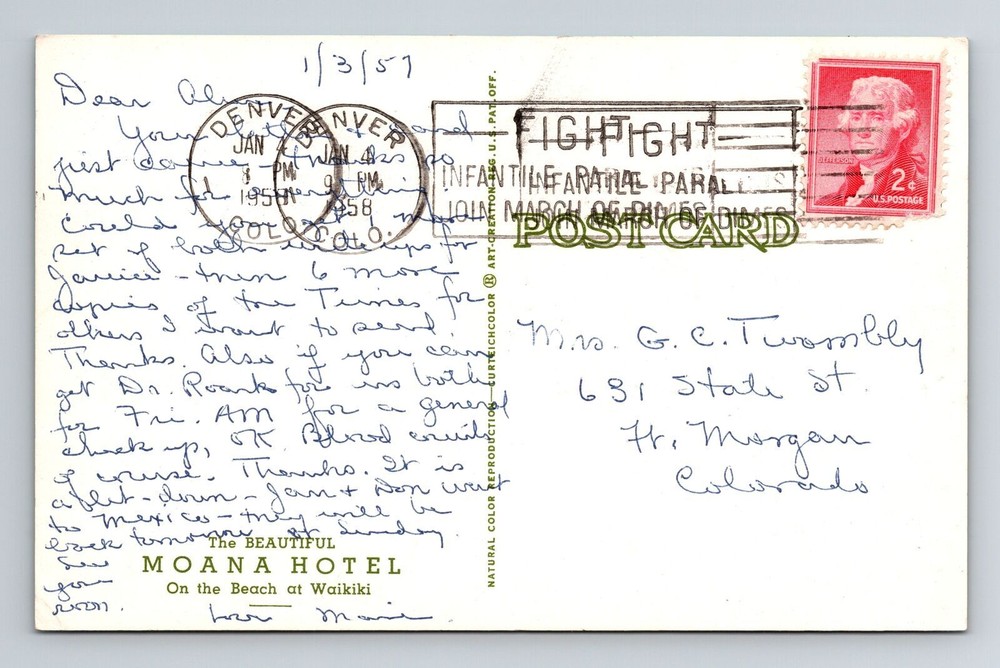 1/3/57
Dear
Your
just came - thanks so
much for everything
Could
set of both write ups for
Janice - then 6 more
copies of the Times for
others I want to send.
Thanks. Also if you can
get Dr. Roark for us both
for Fri. AM for a general
check up, OK Blood
of course. Thanks. It is
a let-down - Jan + Don went
to Mexico - they will be
back tomorrow or Sunday
See
you
soon.
Love Marie
The BEAUTIFUL
MOANA HOTEL
On the Beach at Waikiki
NATURAL COLOR REPRODUCTION—CURTEICHCOLOR ® ART-CREATION REG. U.S. PAT. OFF.
DENVER
JAN
PM
1958
COLO.
DENVER
JAN 4
PM
1958
COLO.
FIGHT FIGHT
INFANTILE PARA INFANTILE PARALYSIS
JOIN MARCH OF DIMES OF DIMES
JEFFERSON
2¢
U.S. POSTAGE
POST CARD
Mrs. G. C. Twombly
631 State St.
Ft. Morgan
Colorado